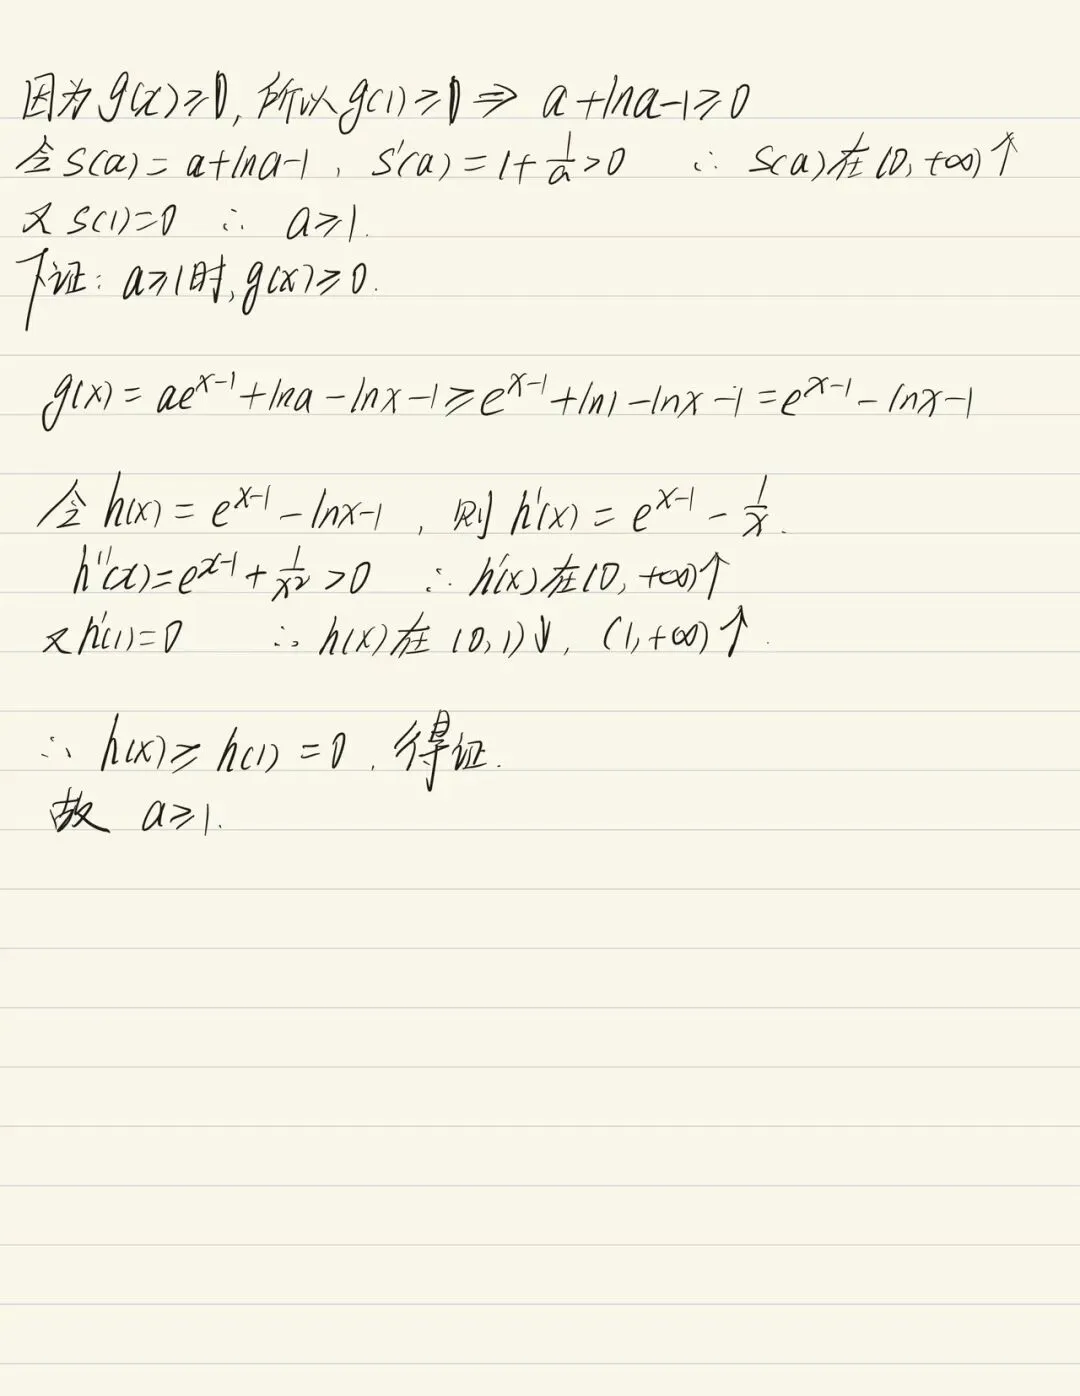 因为g(x)≥0,所以g(1)≥0⇒ a+lna-1≥0
令s(a)=a+lna-1, s'(a)=1+1/a>0 ∴ s(a)在(0,+∞)↑
又s(1)=0 ∴ a≥1.
下证:a≥1时,g(x)≥0.
g(x)=ae^{x-1}+lna-lnx-1≥e^{x-1}+ln1-lnx-1=e^{x-1}-lnx-1
令h(x)=e^{x-1}-lnx-1,则h'(x)=e^{x-1}-1/x.
h''(x)=e^{x-1}+1/x²>0 ∴h'(x)在(0,+∞)↑
又h'(1)=0 ∴h(x)在(0,1)↓,(1,+∞)↑.
∴h(x)≥h(1)=0.得证.
故 a≥1.